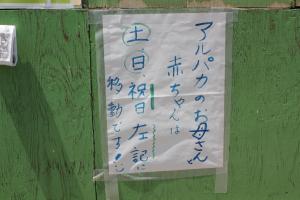 アルパカのお母さん
赤ちゃんは
土、日、祝日左記に
移動でる!